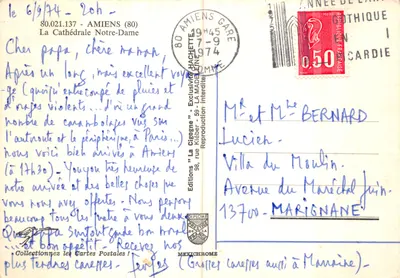 le 6/9/74 - 20h -
80.021.137 - AMIENS (80)
La Cathédrale Notre-Dame
Cher papa, chère maman,
Après un long, mais excellent voya-
ge (quoiqu'entrecoupé de pluies et
d'orages violents... d'où un grand
nombre de carambolages vus sur
l'autoroute et le périphérique, à Paris...)
nous voici bien arrivés à Amiens
(à 17h30) - Youyou très heureuse de
notre arrivée et des belles choses que
vous nous avez offertes - Nous pensons
beaucoup tous à vous deux
Que papa surtout garde bon moral
... et bon appétit - Recevez nos
plus tendres caresses - (Grosses caresses aussi à Marraine)
Collectionnez les Cartes Postales !
Editions "La Cigogne" - Exclusivité HACHETTE
98, rue Kléber - 59 - LA MADELEINE
Reproduction interdite
MEXICHROME
80 AMIENS GARE
19H45
7-9
1974
SOMME
ANNÉE DE L'ART
GOTHIQUE
EN
PICARDIE
0,50
Mr et Mme BERNARD
Lucien
Villa du Moulin
Avenue du Maréchal Juin
13700 - MARIGNANE